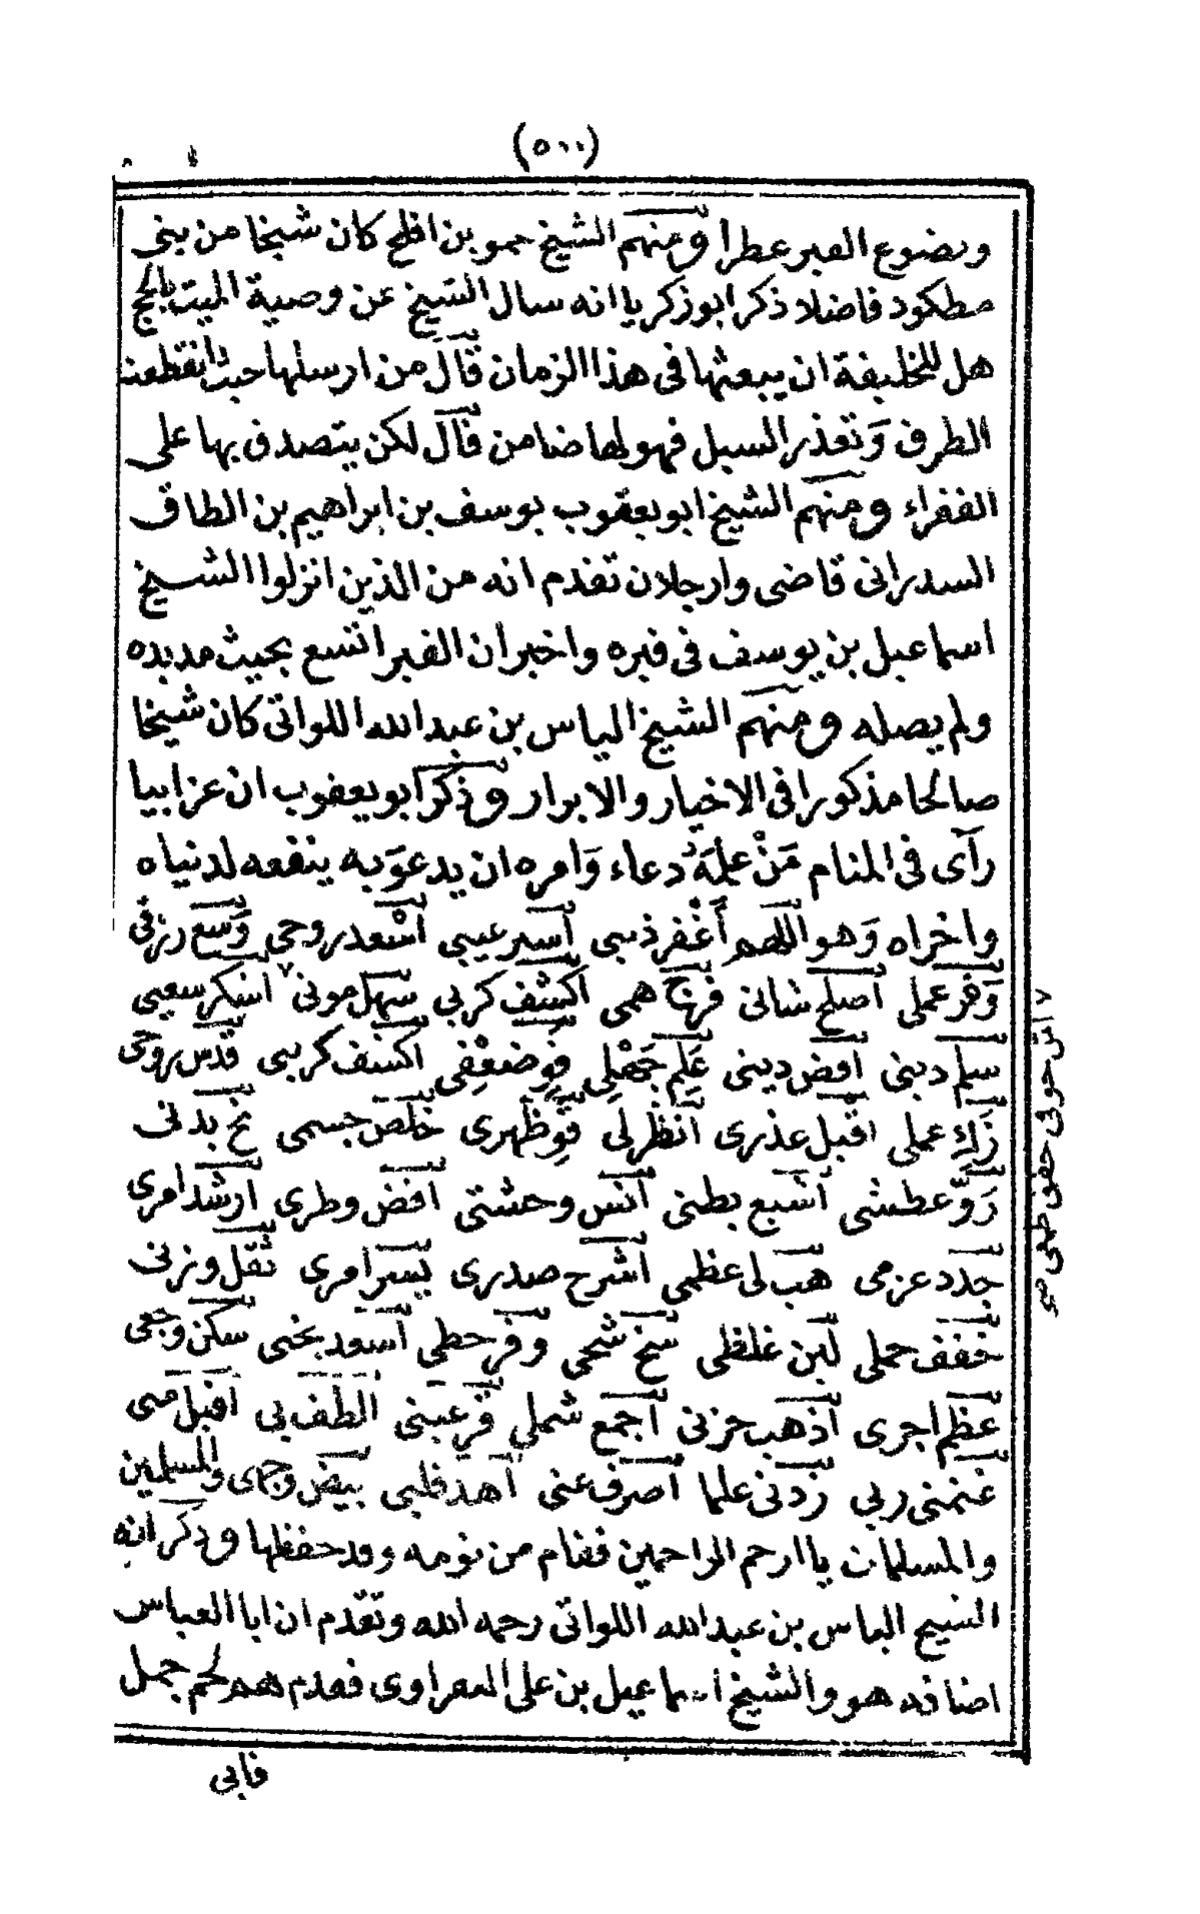 (٥٠٠)
ويضوع القبر عطرا ومنهم الشيخ حمو بن افلح كان شيخا من بنى
مطكود فاضلا ذكر ابو زكريا انه سال الشيخ عن وصية الميت بالحج
هل للخليفة ان يبعثها فى هذا الزمان قال من ارسلها حيث انقطعت
الطرق وتعذر السبل فهو لها ضامن قال لكن يتصدق بها على
الفقراء ومنهم الشيخ ابو يعقوب يوسف بن ابراهيم بن الطاق
السدراتى قاضى وارجلان تقدم انه من الذين انزلوا الشيخ
اسماعيل بن يوسف فى قبره واخبر ان القبر اتسع بحيث مد يده
ولم يصله ومنهم الشيخ الياس بن عبد الله اللواتى كان شيخا
صالحا مذكورا فى الاخيار والابرار وذكر ابو يعقوب ان عزابيا
رآى فى المنام مَنْ علمَهُ دعاء وَامره ان يدعوَ به ينفعه لدنياه
واخراه وَهو اللهم أغْفر ذنبى أستر عيبى أسْعد روحى وَسع رزقى
وَفر عملى أصلح شانى فرج همى اكشف كربي سهل موتى٧ اشكر سعيى
سلم دينى اقض دينى عَلِم جَهْلِى قوِ ضعْفِى اكشف كربى قدس روحى
زَكِ عملى اقبل عذرى أنظر لى قوِ ظهرى خلص جسمى نج بدنى
رَوِّ عطشى أشبع بطنى آنس وحشتى اقض وطرى ارشد امرى
جدد عزمى هب لى عظمى أشرح صدرى يسر امرى ثقل وزنى
خفف حملى لين غلظى سخ شحى وفر حظى أسعد بختى سكن وجعى
عظم اجرى أذهب حزنى أجمع شملى قر عينى الطف بي اقبل منى
غنمنى ربي زدنى علما أصرف عنى أهد قلبى بيض وجهى والمسلمين
والمسلمات يا ارحم الراحمين فقام من نومه وقد حفظها وذكر انه
الشيخ الياس بن عبد الله اللواتى رحمه الله وتقدم ان ابا العباس
اضافه هو والشيخ اسماعيل بن على النفزاوى فقدم لهم لحم جمل
فابى
٧ اش حوفى حفق طهى صح